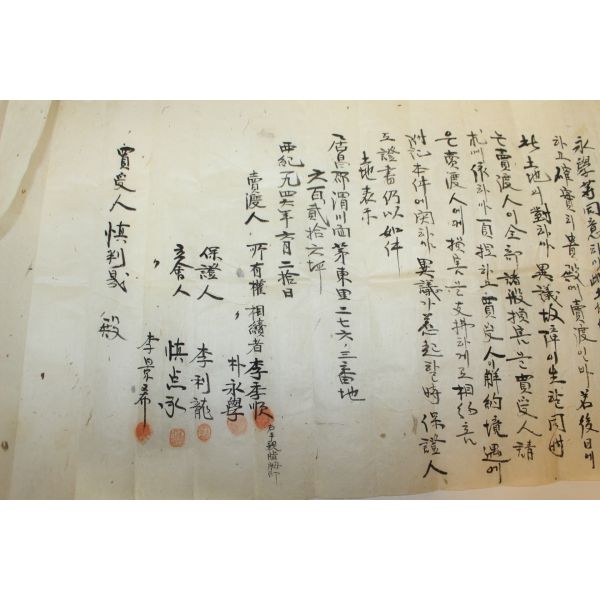 永學等同意하야此土地를
하고確實히貴殿에賣渡이바若後日에
此土地에對하야異議故障이生할同時
는賣渡人이全部諸般損害를買受人請
求에依하야負担하고買受人이解約境遇에
은賣渡人에게損害를支拂하게互相約束
附記本件에関하야異議가惹起할時保證人
互證書仍以如件
土地表示
居昌郡渭川面茅東里二七六ノ三番地
六百貳拾六坪
西紀一九四六年六月二拾日
賣渡人 所有權相續者 李季順 右手親指拇印
〃 朴永學
保證人 李利龍
立會人 慎点永
〃 李景希
買受人 慎判晟 殿